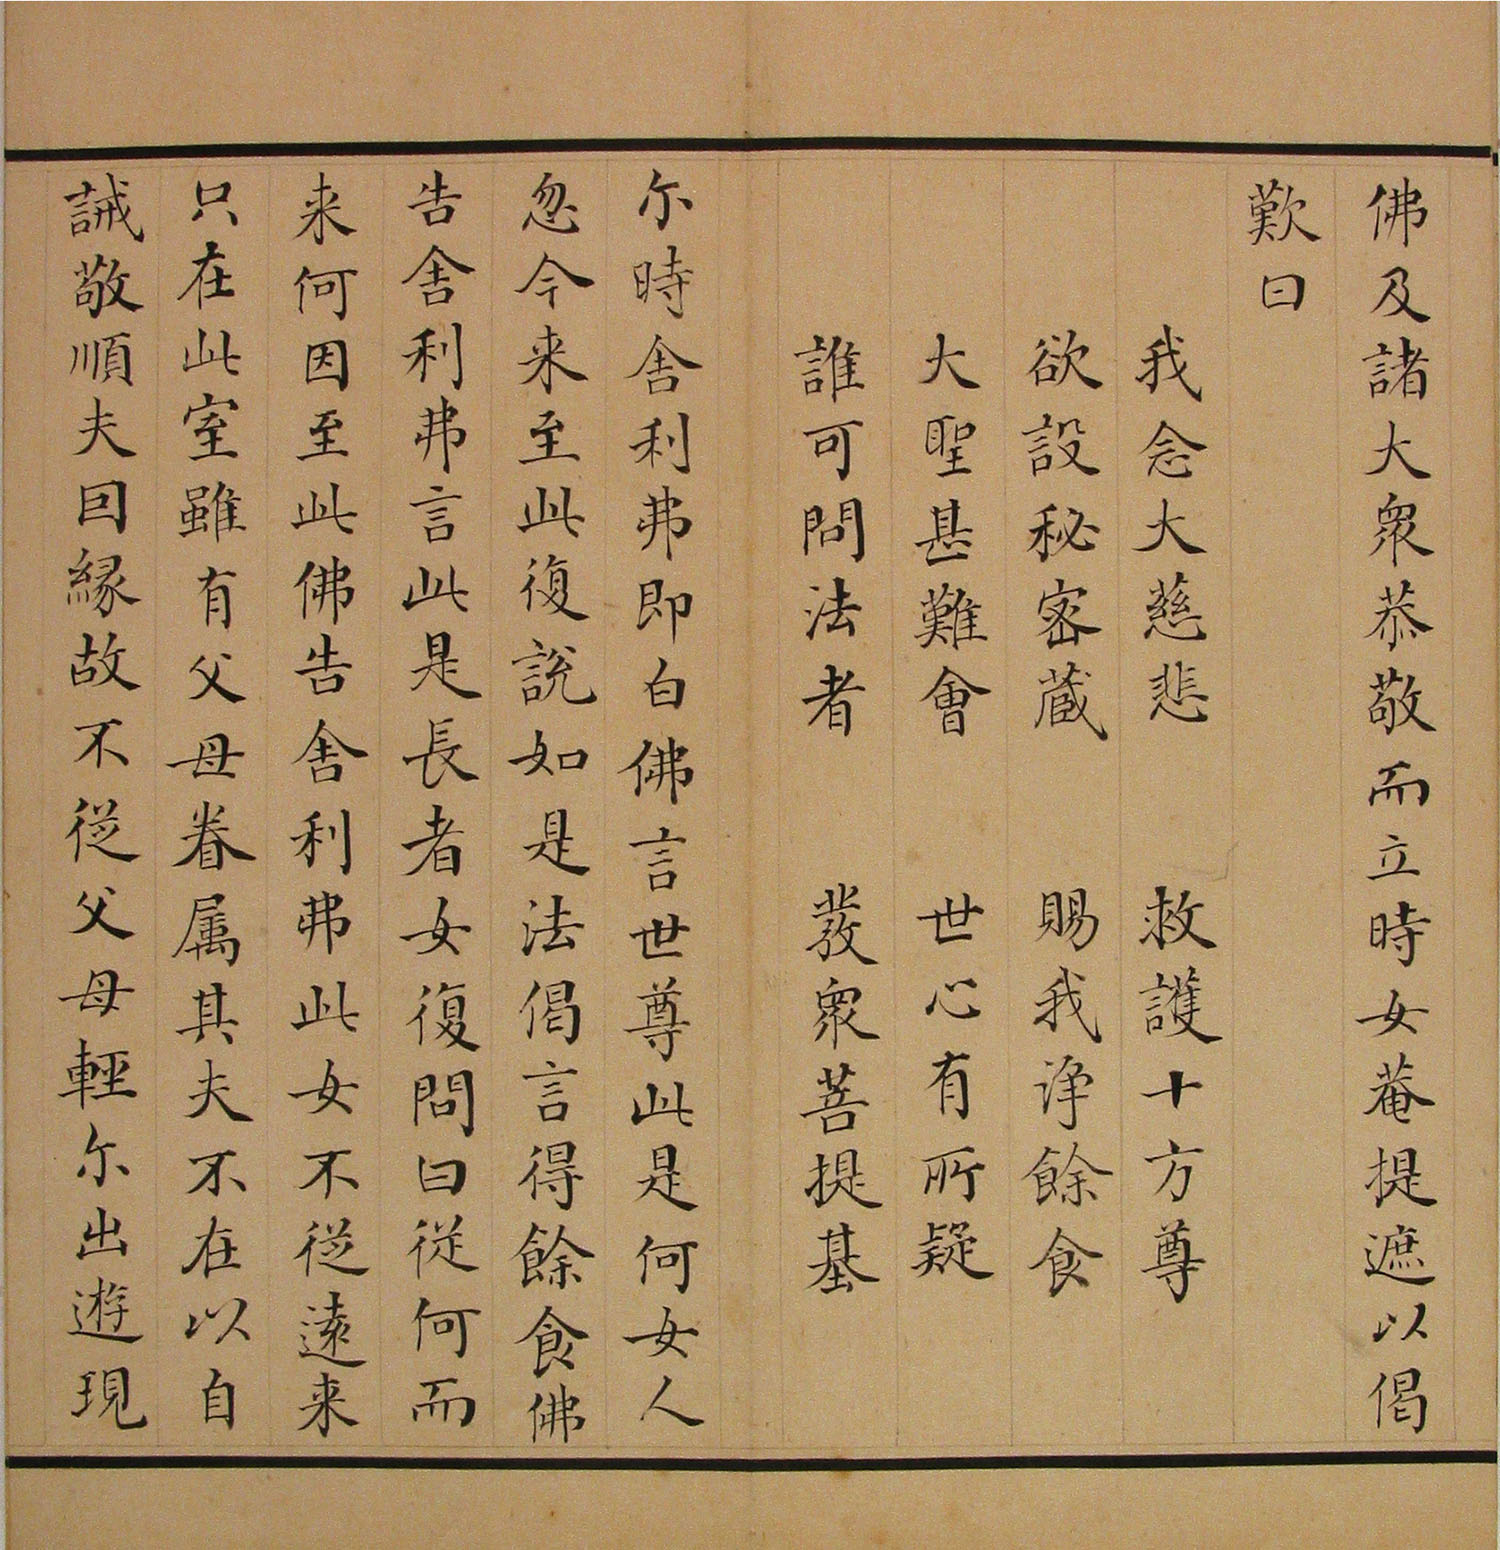 佛及諸大衆恭敬而立時女菴提遮以偈
歎曰
我念大慈悲　救護十方尊
欲設秘密蔵　賜我浄餘食
大聖甚難會　世心有所疑
誰可問法者　發衆菩提基
尒時舍利弗即白佛言世尊此是何女人
忽今来至此復說如是法偈言得餘食佛
告舍利弗言此是長者女復問曰從何而
来何因至此佛告舍利弗此女不從遠来
只在此室雖有父母眷属其夫不在以自
誡敬順夫囙縁故不從父母輕尒出遊現